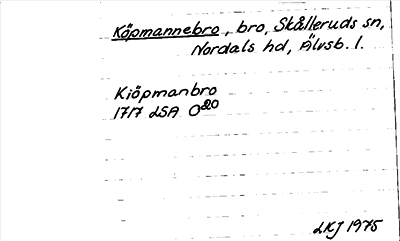 Köpmannebro, bro, Skålleruds sn,
Nordals hd, Älvsb. l.
Kiöpmanbro
1717 LSA O220
LKJ 1975